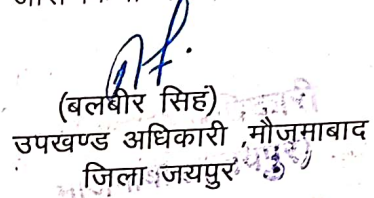 (बलबीर सिंह)
उपखण्ड अधिकारी ,मौजमाबाद
जिला जयपुर